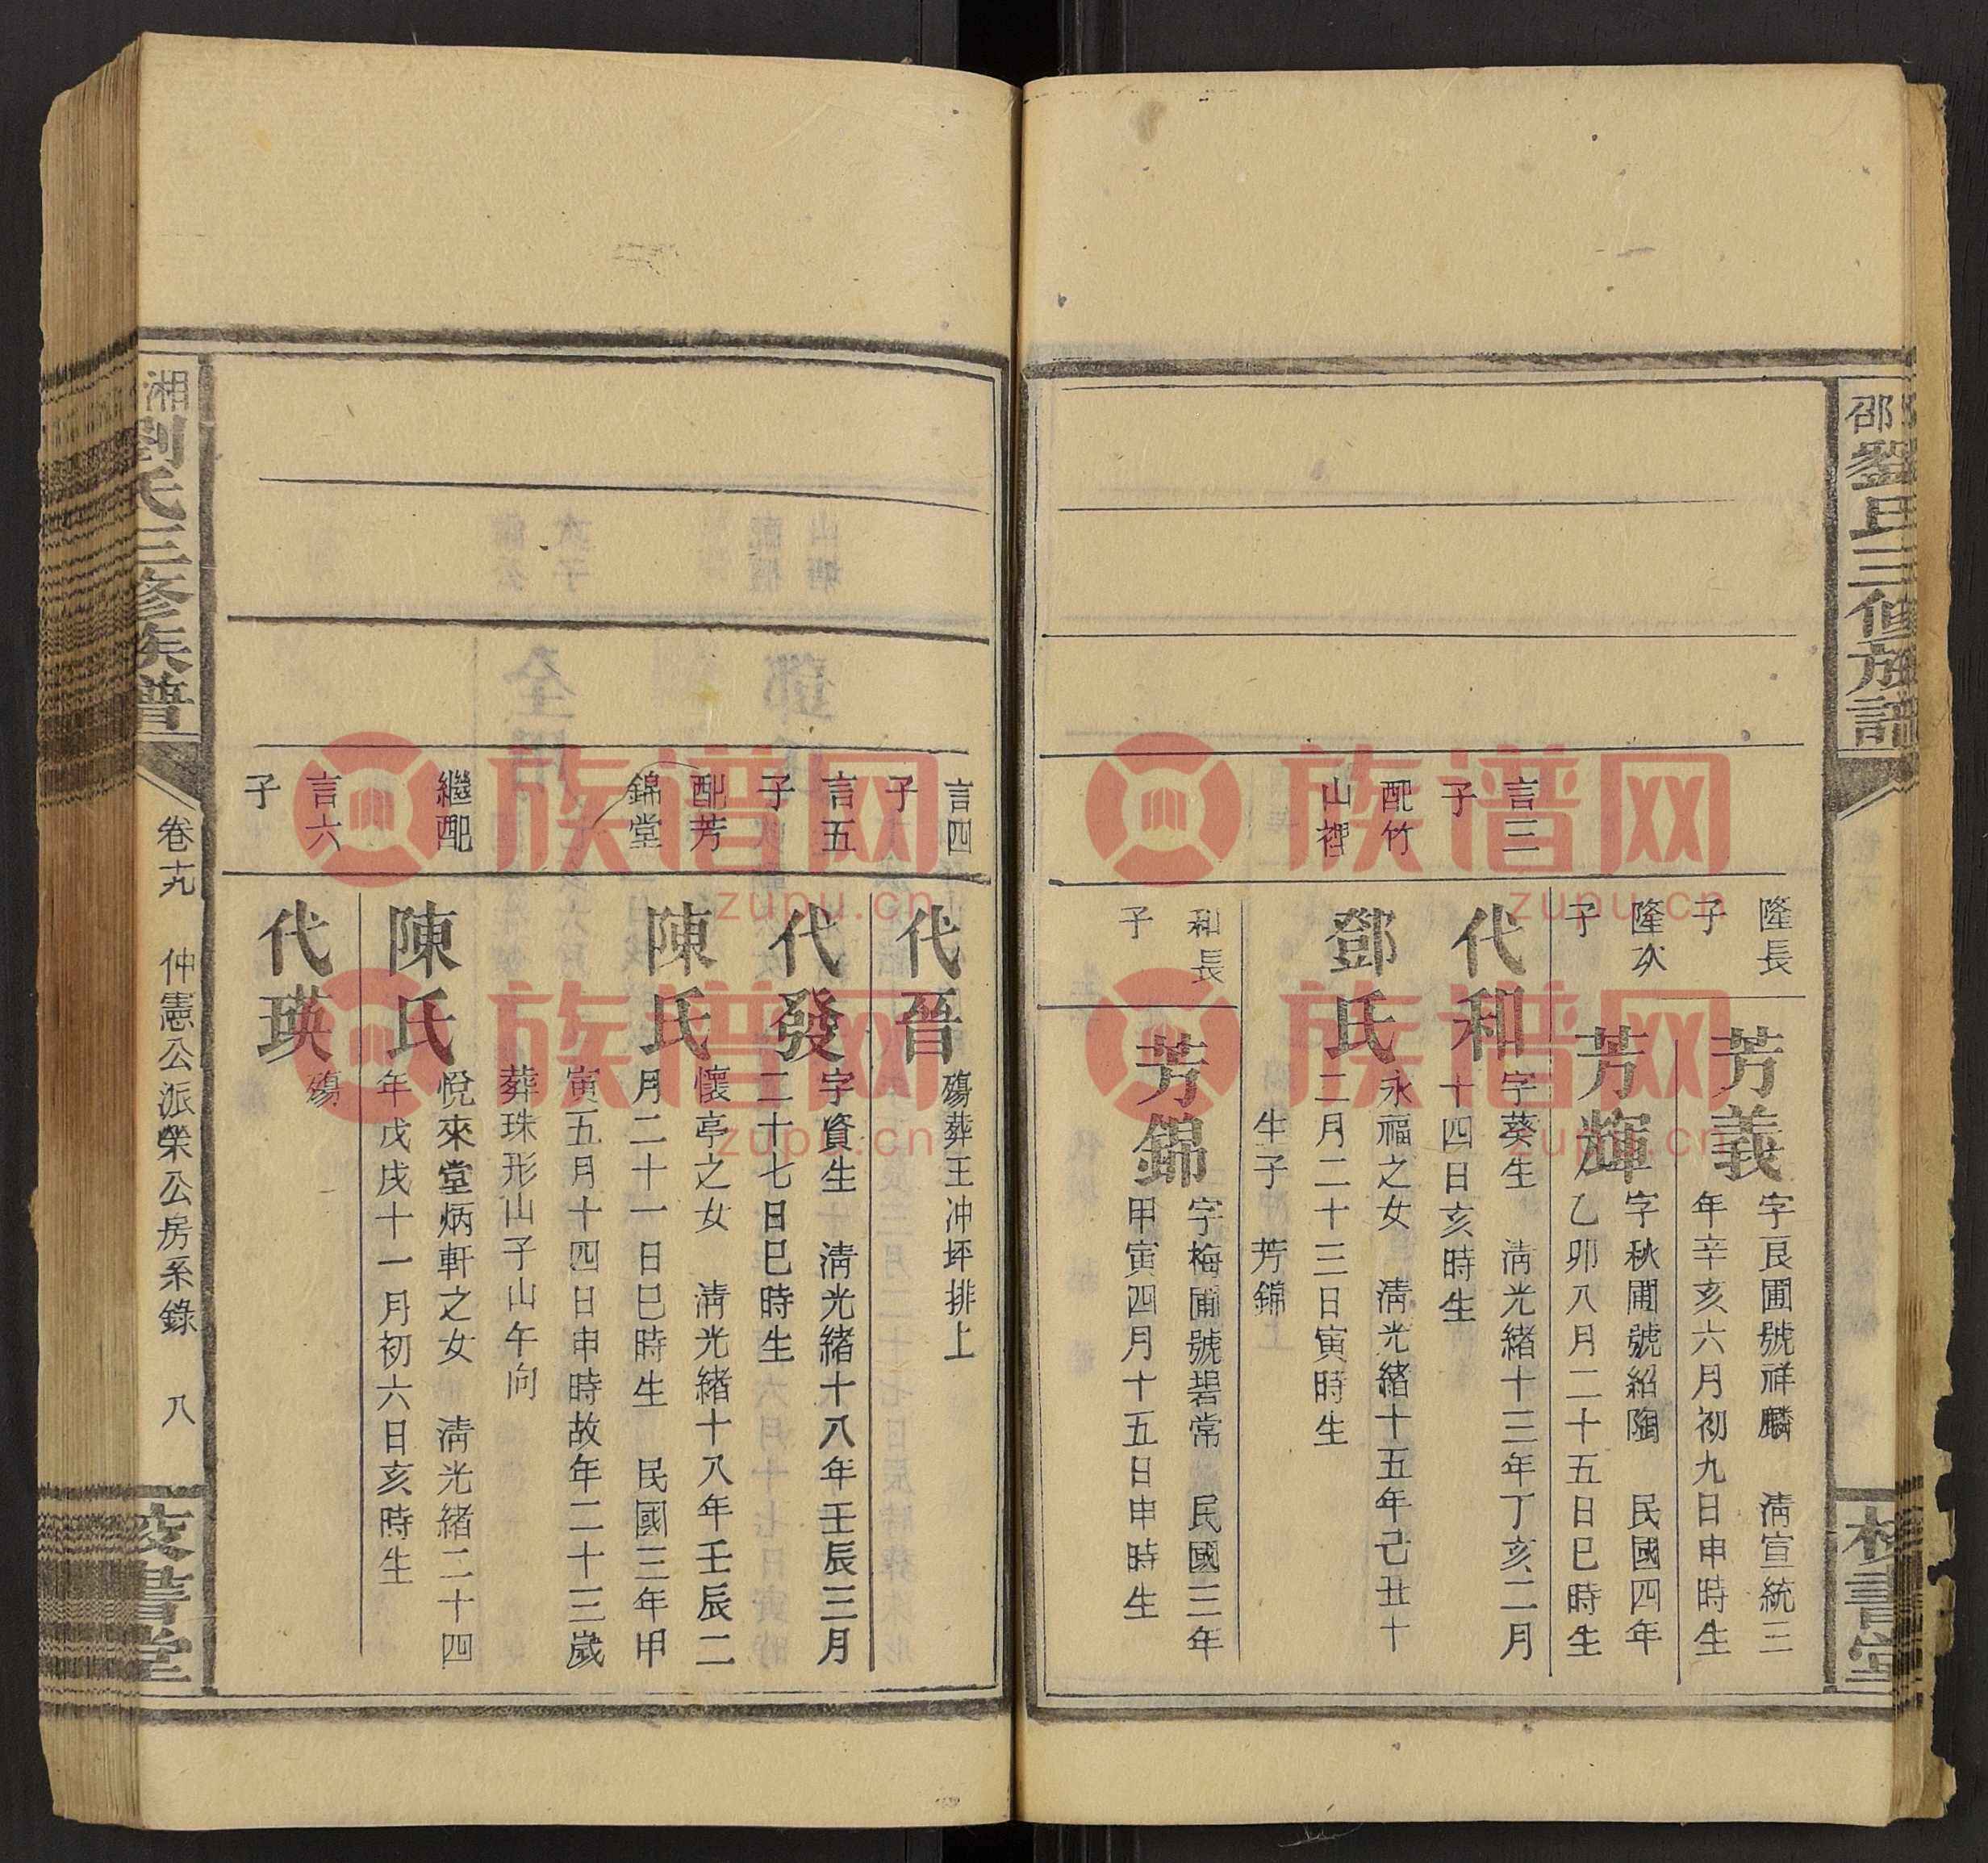 邵劉氏三修族譜
隆長
子
芳義
字艮圃號祥麟　淸宣統三
年辛亥六月初九日申時生
隆次
子
芳輝
字秋圃號紹陶　民國四年
乙卯八月二十五日巳時生
言三
子
代和
字葵生　淸光緒十三年丁亥二月
十四日亥時生
配竹
山禮
鄧氏
永福之女　淸光緒十五年己丑十
二月二十三日寅時生
生子　芳錦
和長
子
芳錦
字梅圃號碧常　民國三年
甲寅四月十五日申時生
言四
子
代晉
殤葬王冲坪排上
言五
子
代發
字資生　淸光緒十八年壬辰三月
二十七日巳時生
配芳
錦堂
陳氏
懷亭之女　淸光緒十八年壬辰二
月二十一日巳時生　民國三年甲
寅五月十四日申時故年二十三歲
葬珠形山子山午向
繼配
陳氏
悅來堂炳軒之女　淸光緒二十四
年戊戌十一月初六日亥時生
言六
子
代瑛
殤
湘劉氏三修族譜
卷十九　仲憲公派榮公房系錄　八
校書堂
族谱网
zupu.cn
族谱网
zupu.cn
族谱网
zupu.cn
族谱网
zupu.cn